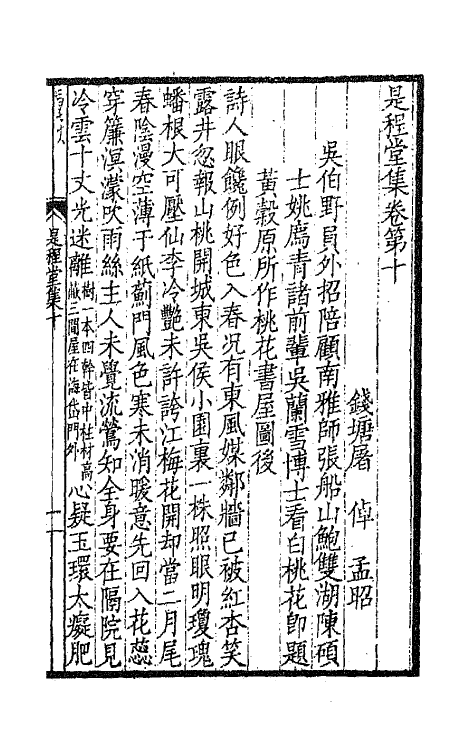 是程堂集卷第十
錢塘屠倬孟昭
吳伯野員外招陪顧南雅師張船山鮑雙湖陳碩
士姚薦青諸前輩吳蘭雪博士看白桃花卽題
黃穀原所作桃花書屋圖後
詩人眼饞例好色入春况有東風媒鄰牆已被紅杏笑
露井忽報山桃開城東吳侯小園裏一株照眼明瓊瑰
蟠根大可壓仙李冷艷未許誇江梅花開却當二月尾
春陰漫空薄于紙薊門風色寒未消暖意先回入花蕊
穿簾溟濛吹雨絲主人未覺流鶯知全身要在隔院見
冷雲十丈光迷離樹一本四幹皆中柱材高蔽三間屋在海岱門外心疑玉環太癡肥
是程堂集十
一